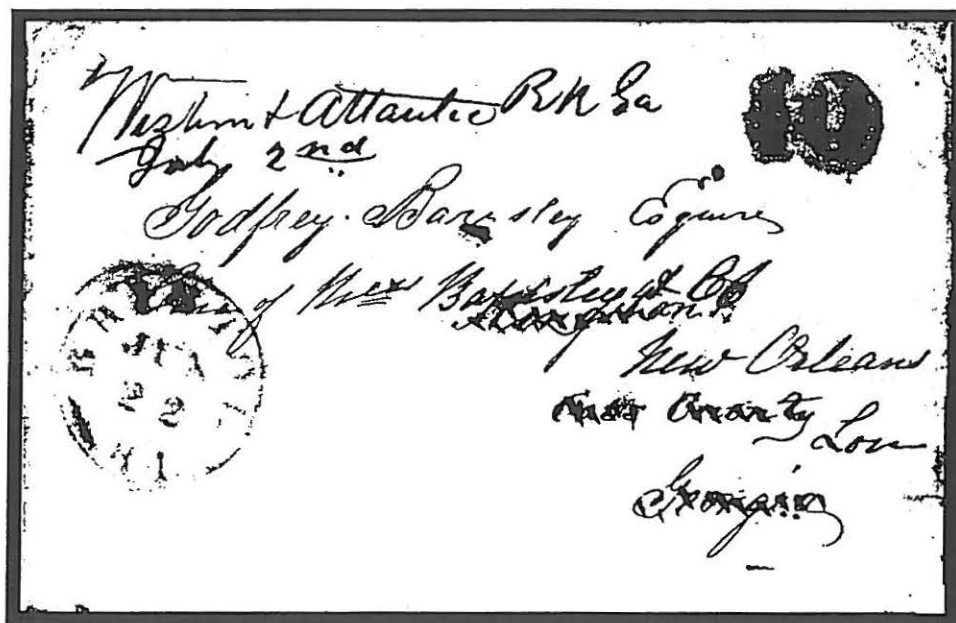 Western & Atlantic R R Ga
July 2nd
10
Godfrey Barnsley Esquire
Care of Barnsley & Co
Kingston
New Orleans
Cass County
Lou
Georgia